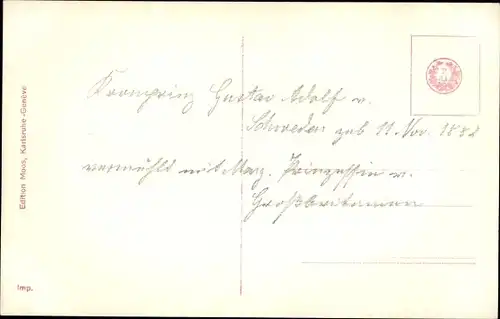 Kronprinz Gustav Adolf v.
Schweden geb 11 Nov. 1882
vermählt mit Marg. Prinzessin v.
Großbritannien
Edition Moos, Karlsruhe-Genève
Imp.